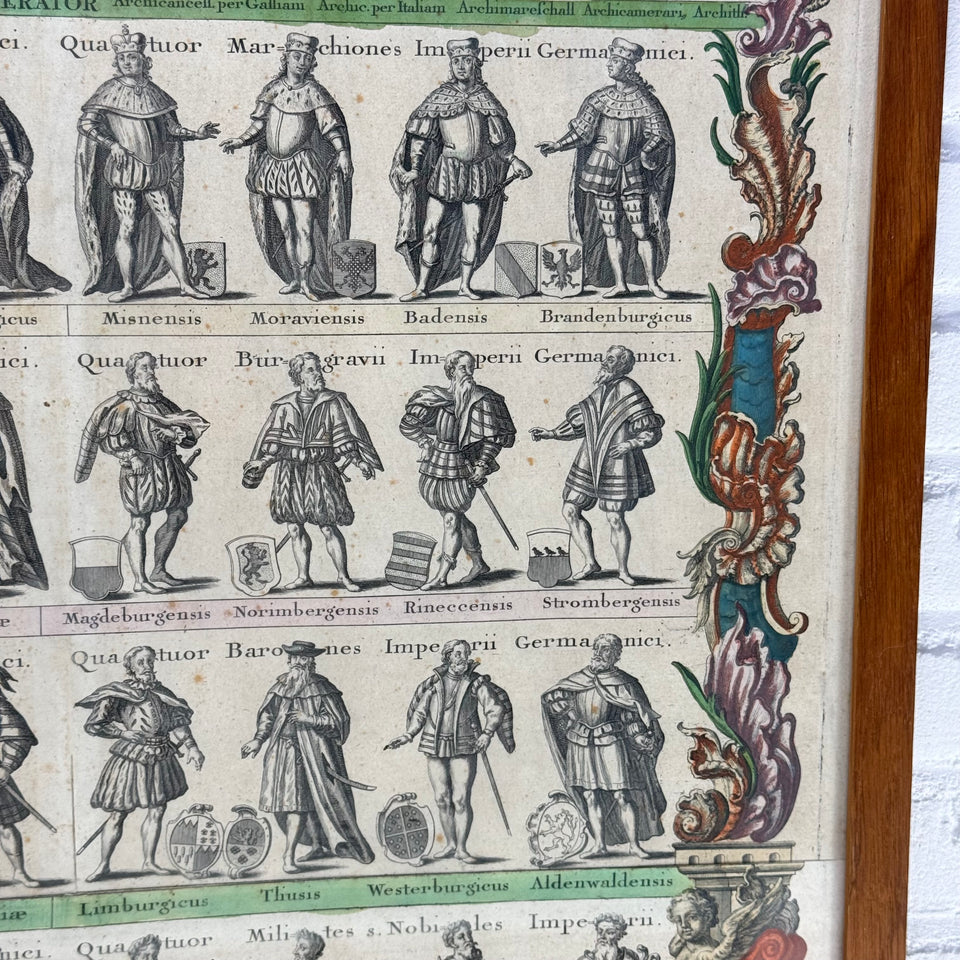 ERATOR Archicancell. per Galliam Archic. per Italiam Archimareschall Archicamerari, Archith
ci. Quatuor Marchiones Imperii Germanici.
icus Misnensis Moraviensis Badensis Brandenburgicus
ici. Quatuor Burgravii Imperii Germanici.
æ Magdeburgensis Norimbergensis Rineccensis Strombergensis
ci. Quatuor Barones Imperii Germanici.
iæ Limburgicus Thusis Westerburgicus Aldenwaldensis
nici. Quatuor Milites s. Nobiles Imperii.